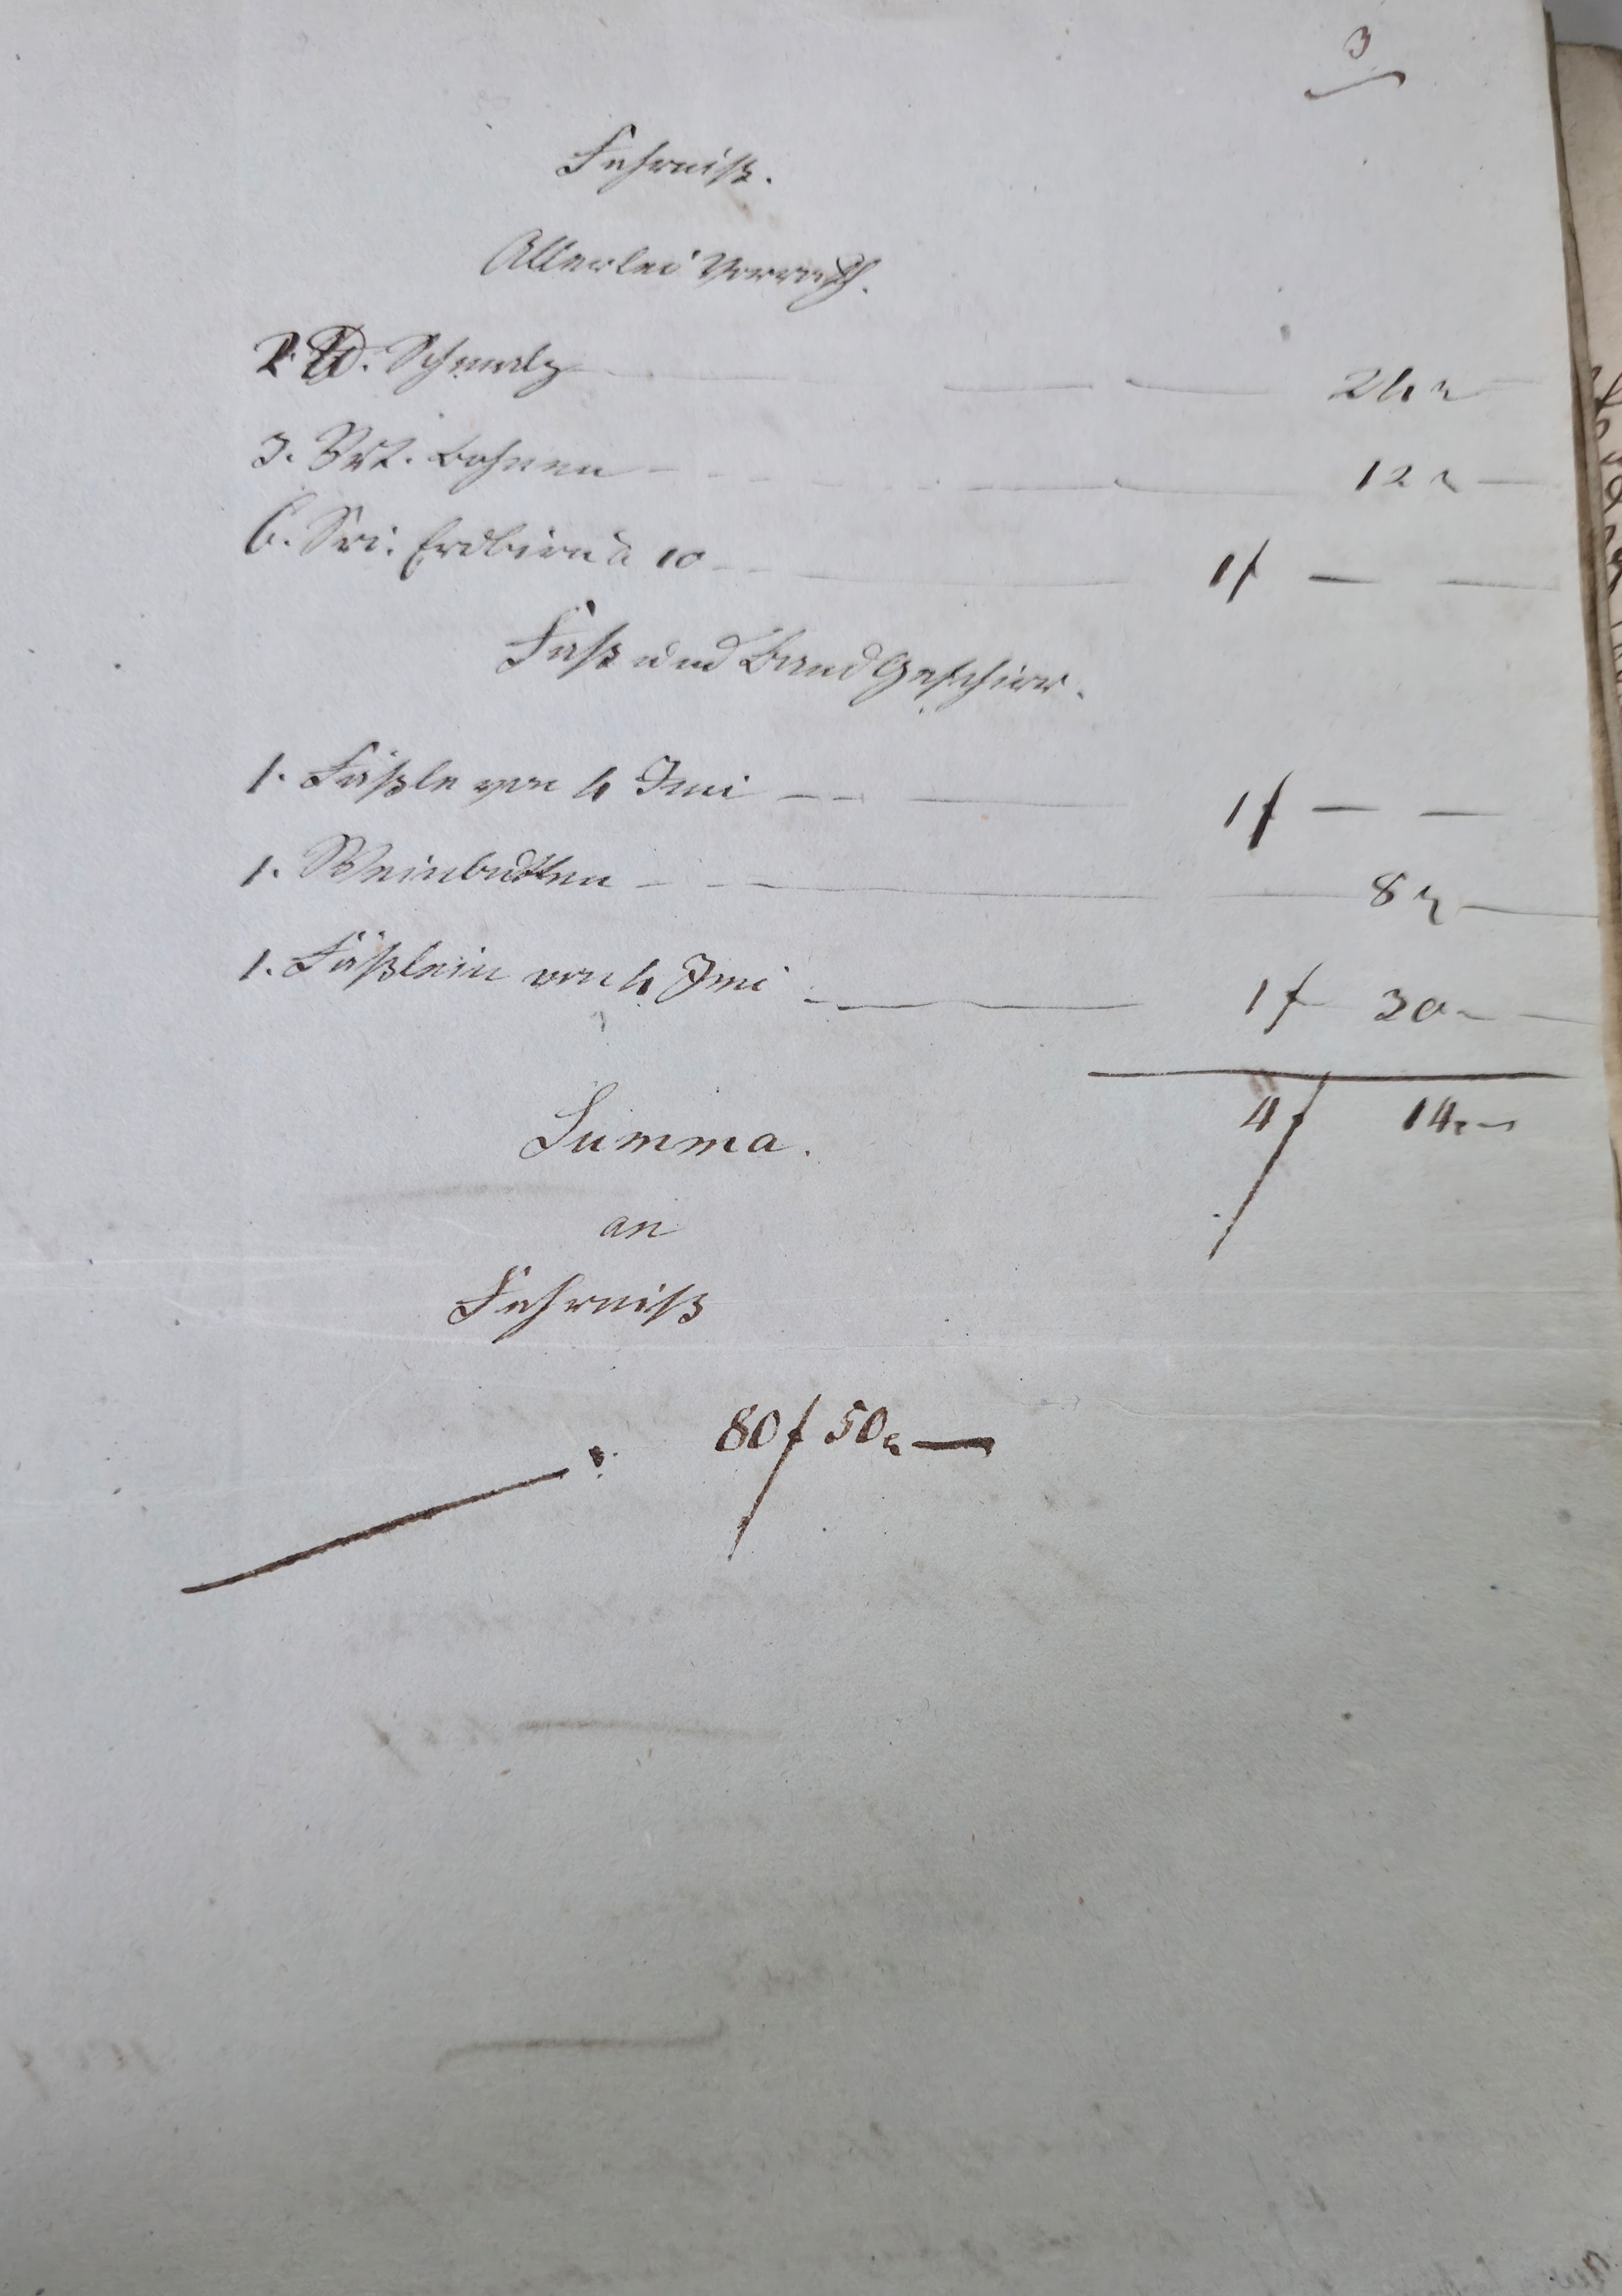 3
Fahrniß.
Allerlei Vorrath.
2. ℔. Schmalz — — — 24 x
3. Vrl. Bohnen — — — 12 x —
6. Sri. Erdbirn à 10 — — 1 f — —
Faß und Band Geschirr.
1. Fäßle von 4 Imi — — — 1 f — —
1. Weinbutten — — — 8 x —
1. Fäßlein von 4 Imi — — 1 f 30 x —
Summa. 4 f 14 x —
an
Fahrniß
80 f 50 x —